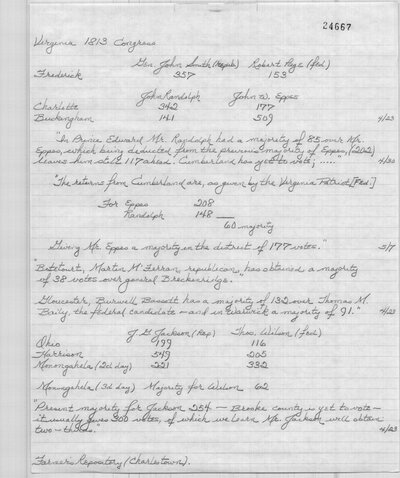 24667
Virginia 1813 Congress
Gen. John Smith (Repub) Robert Page (Fed.)
Frederick 357 153
John Randolph John W. Eppes
Charlotte 342 177
Buckingham 141 509 4/23
"In Prince Edward Mr. Randolph had a majority of 85 over Mr.
Eppes, which being deducted from the previous majority of Eppes, (202)
leaves him still 117 ahead. Cumberland has yet to vote; ....." 4/30
"The returns from Cumberland are, as given by the Virginia Patriot, [Fed.]
For Eppes 208
Randolph 148
60 majority
Giving Mr. Eppes a majority in the district of 177 votes." 5/7
"Botetourt, Martin M'Ferran, republican, has obtained a majority
of 38 votes over general Breckenridge."
"Gloucester, Burwell Bassett has a majority of 132 over Thomas M.
Baily, the federal candidate - and in Warwick a majority of 91." 4/23
J G Jackson (Rep) Thos. Wilson (Fed.)
Ohio 199 116
Harrison 549 205
Monongahela (2d day) 221 332
Monongahela (3d day) Majority for Wilson 62
"Present majority for Jackson 254 - Brooke county is yet to vote -
it usually gives 300 votes, of which we learn Mr. Jackson will obtain
two-thirds." 4/23
Farmer's Repository (Charlestown).